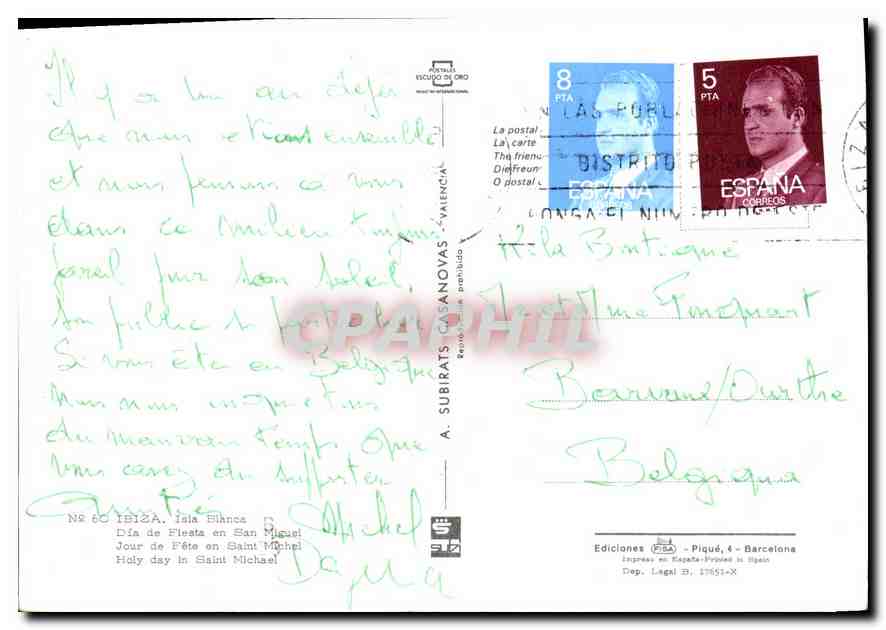 Il y a un an déjà
que nous étions ensemble
et nous pensons à vous
dans ce milieu toujours
pareil pour son soleil,
son public si particulier
Si vous êtes en Belgique
nous nous inquiétons
du mauvais temps que
vous avez du supporter
Amitiés
Michel
Nº 60 IBIZA. Isla Blanca
Día de Fiesta en San Miguel
Jour de Fête en Saint Michel
Holy day in Saint Michael
POSTALES
ESCUDO DE ORO
A. SUBIRATS CASANOVAS - VALENCIA
Reproducción prohibida
SUBI
CPAPHIL
La postal
La carte
The friend
Die Freun
O postal
8
PTA
ESPAÑA
CORREOS
5
PTA
ESPAÑA
CORREOS
EN LAS POBLACIONES CON
DISTRITO POSTAL
PONGA EL NUMERO DE ESTE
A la Boutique
M et Mme
/Ourthe
Belgique
Ediciones FISA - Piqué, 4 - Barcelona
Impreso en España-Printed in Spain
Dep. Legal B. 17651-X